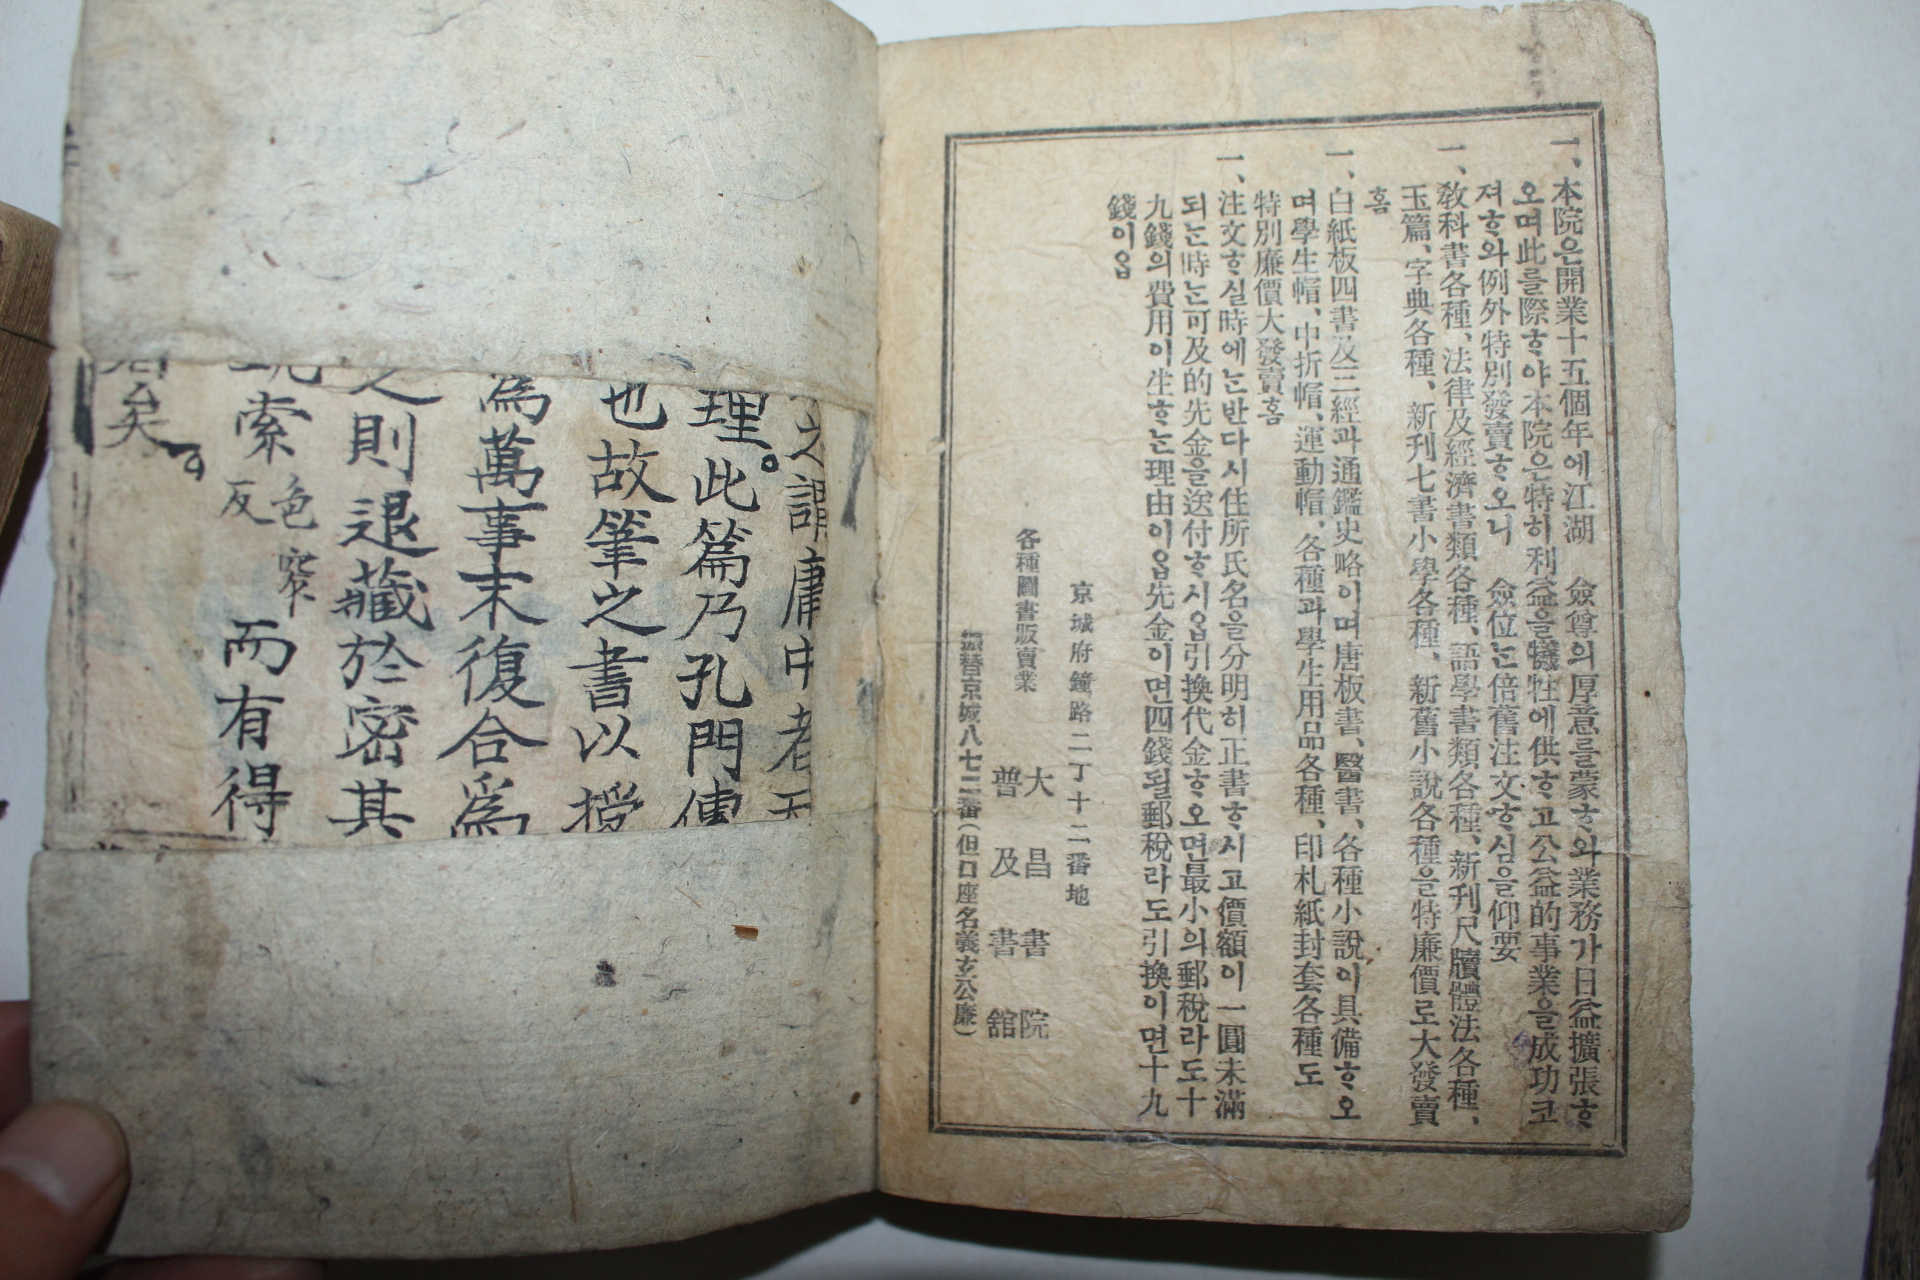 一、本院은開業十五個年에江湖 僉尊의厚意를蒙ᄒᆞ와業務가日益擴張ᄒᆞ
오며此를際ᄒᆞ야本院은特히利益을犧牲에供ᄒᆞ고公益的事業을成功코
져ᄒᆞ와例外特別發賣ᄒᆞ오니 僉位ᄂᆞᆫ倍舊注文ᄒᆞ심을仰要
一、敎科書各種、法律及經濟書類各種、語學書類各種、新刊尺牘體法各種、
玉篇、字典各種、新刊七書小學各種、新舊小說各種을特廉價로大發賣
홈
一、白紙板四書及三經과通鑑史略이며唐板書、醫書、各種小說이具備ᄒᆞ오
며學生帽、中折帽、運動帽、各種과學生用品各種、印札紙封套各種도
特別廉價大發賣홈
一、注文ᄒᆞ실時에ᄂᆞᆫ반다시住所氏名을分明히正書ᄒᆞ시고價額이一圓未滿
되ᄂᆞᆫ時ᄂᆞᆫ可及的先金을送付ᄒᆞ시옵引換代金ᄒᆞ오면最小의郵稅라도十
九錢의費用이生ᄒᆞᄂᆞᆫ理由이옵先金이면四錢될郵稅라도引換이면十九
錢이옵
京城府鐘路二丁十二番地
各種圖書販賣業
大昌書院
普及書舘
振替京城八七二番(但口座名義玄公廉)
之謂庸中者天
理此篇乃孔門傳
也故筆之書以授
爲萬事末復合爲
之則退藏於密其
索色窄反而有得
者矣